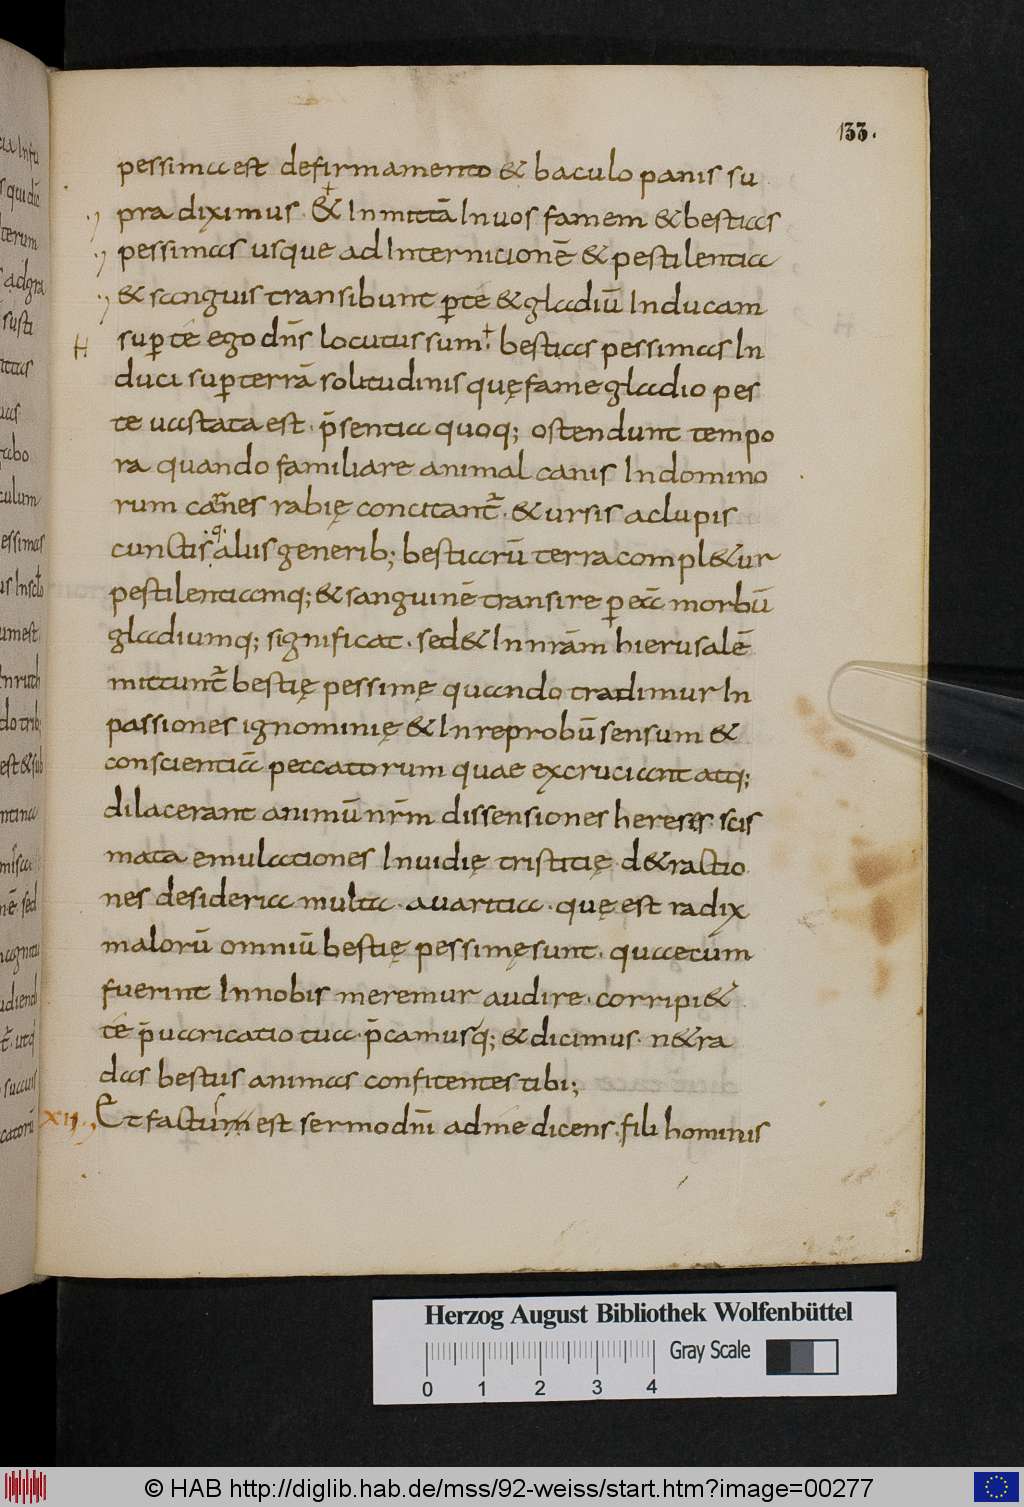 133.
pessima est de firmamento & baculo panis su
pra diximus · & Inmittā In uos famem & bestias
pessimas usque ad Internicionē & pestilentia
& sanguis transibunt p̱ te & gladiū Inducam
H sup̱ te ego dn̄s locutus sum · bestias pessimas In
duci sup̱ terrā solitudinis quę fame gladio pes
te uastata est · p̄sentia quoq; ostendunt tempo
ra quando familiare animal canis In domino
rum carnes rabię concitant̄ · & ursis ac lupis
cunctisq; aliis generib; bestiarū terra compl&ur
pestilentiamq; & sanguinē transire p̱ ea morbū
gladiumq; significat · sed & In nr̄am hierusalē
mittunt̄ bestię pessimę quando tradimur In
passiones ignominię & In reprobū sensum &
conscientia peccatorum quae excruciant atq;
dilacerant animū nr̄m dissensiones hereses scis
mata emulationes Inuidię tristitię · d&ractio
nes desideria multa · auaritia · quę est radix
malorū omniū bestię pessimę sunt · quae cum
fuerint In nobis meremur audire · corripi&
te p̄uaricatio tua · p̄camusq; & dicimus · ne tra
das bestiis animas confitentes tibi;
XII. Et factum est sermo dn̄i ad me dicens · fili hominis
Herzog August Bibliothek Wolfenbüttel
Gray Scale
0 1 2 3 4
© HAB http://diglib.hab.de/mss/92-weiss/start.htm?image=00277